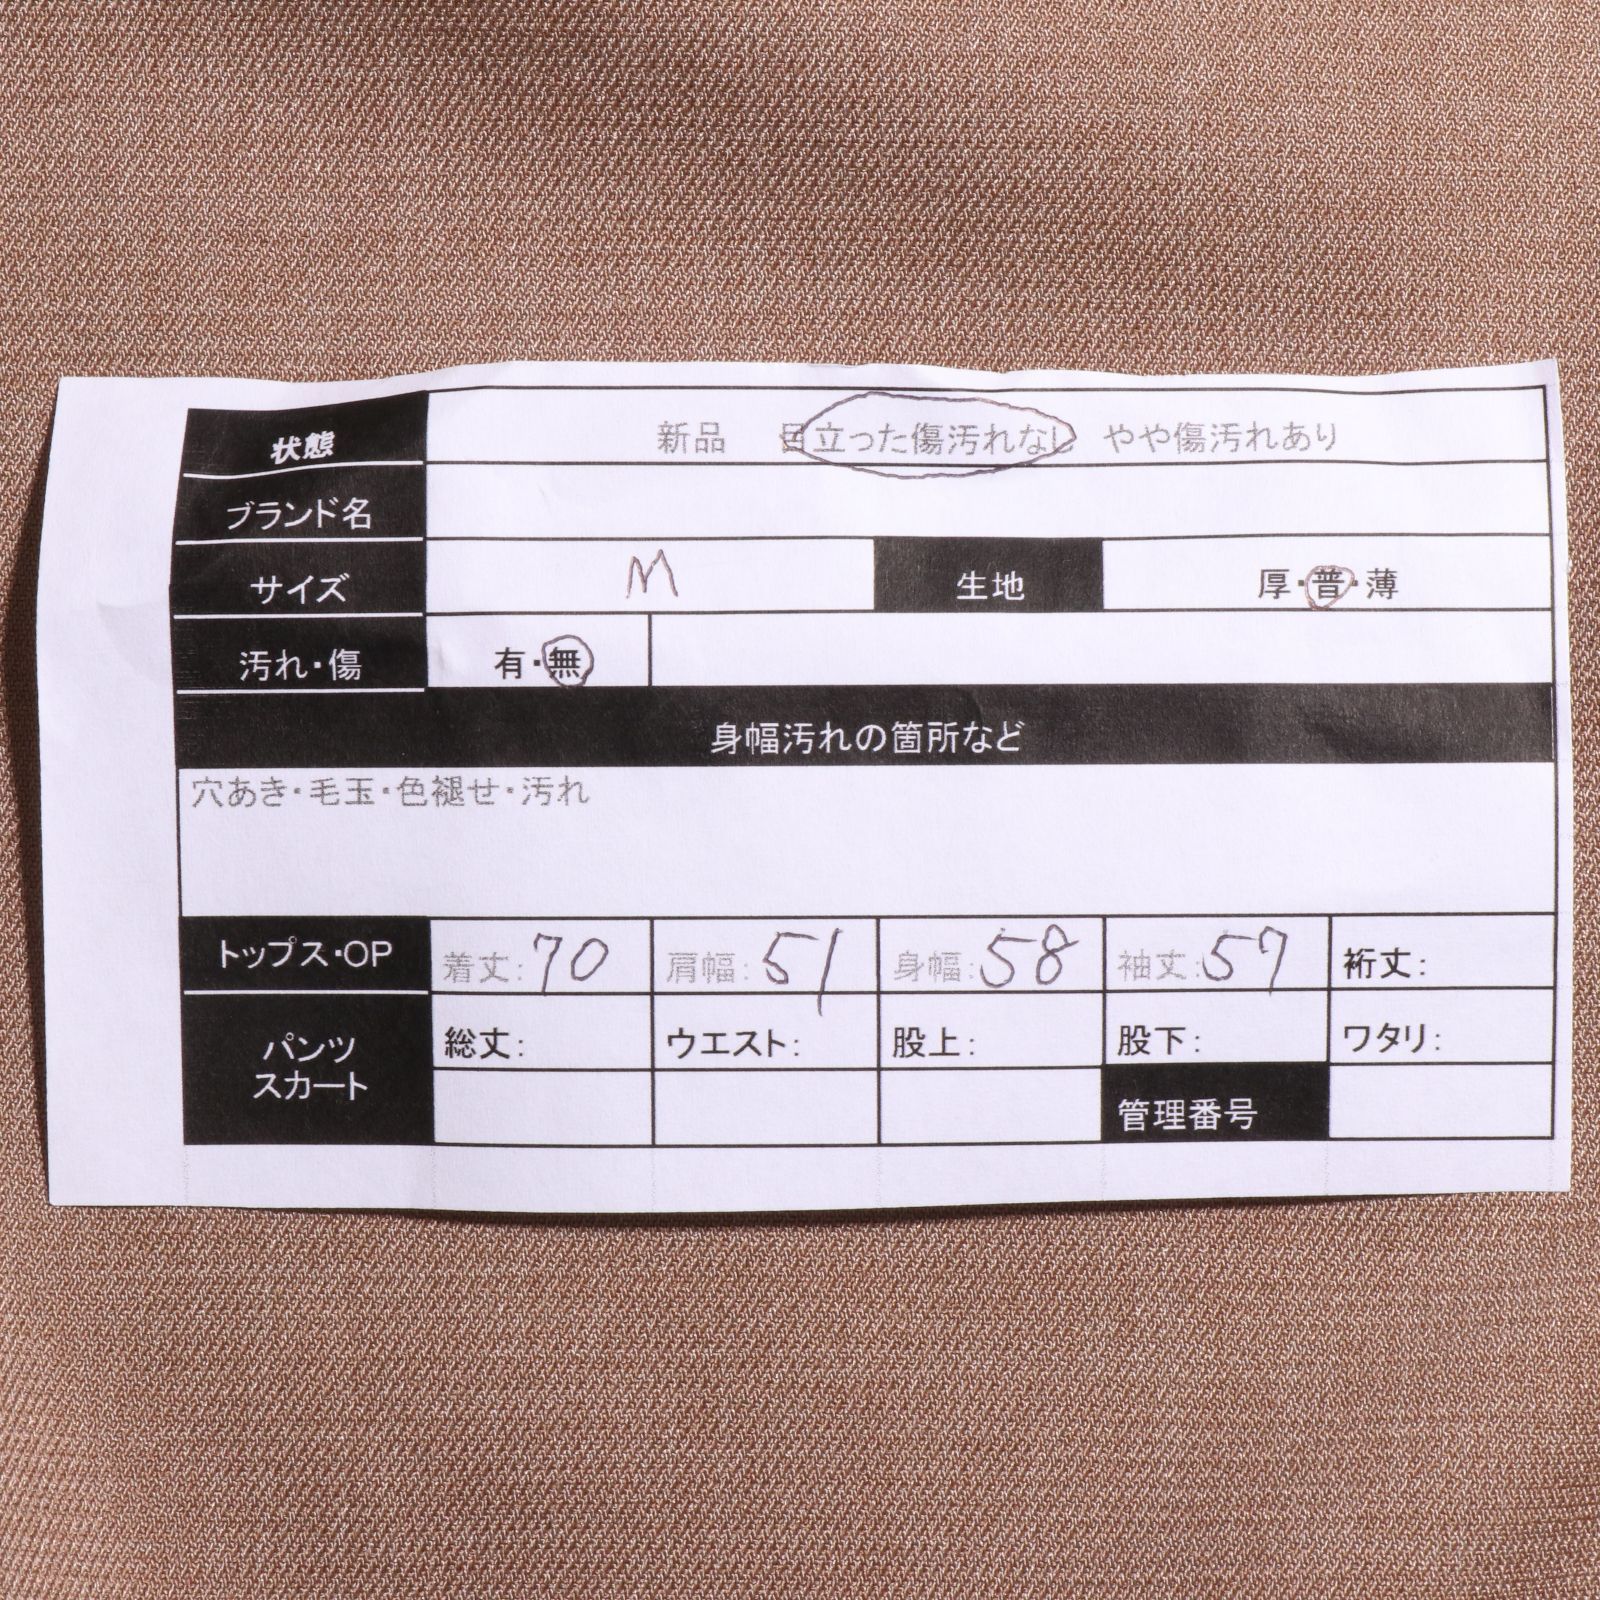 状態 新品 目立った傷汚れなし やや傷汚れあり
ブランド名
サイズ M 生地 厚・普・薄
汚れ・傷 有・無
身幅汚れの箇所など
穴あき・毛玉・色褪せ・汚れ
トップス・OP 着丈:70 肩幅:51 身幅:58 袖丈:57 裄丈:
パンツ 総丈: ウエスト: 股上: 股下: ワタリ:
スカート 管理番号